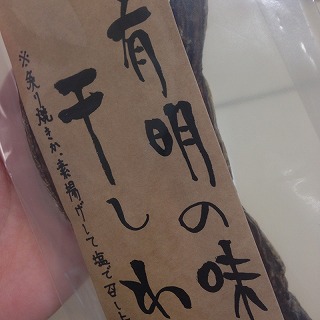 有明の味
干しわ
※炙り焼きか、素揚げして塩で召し上